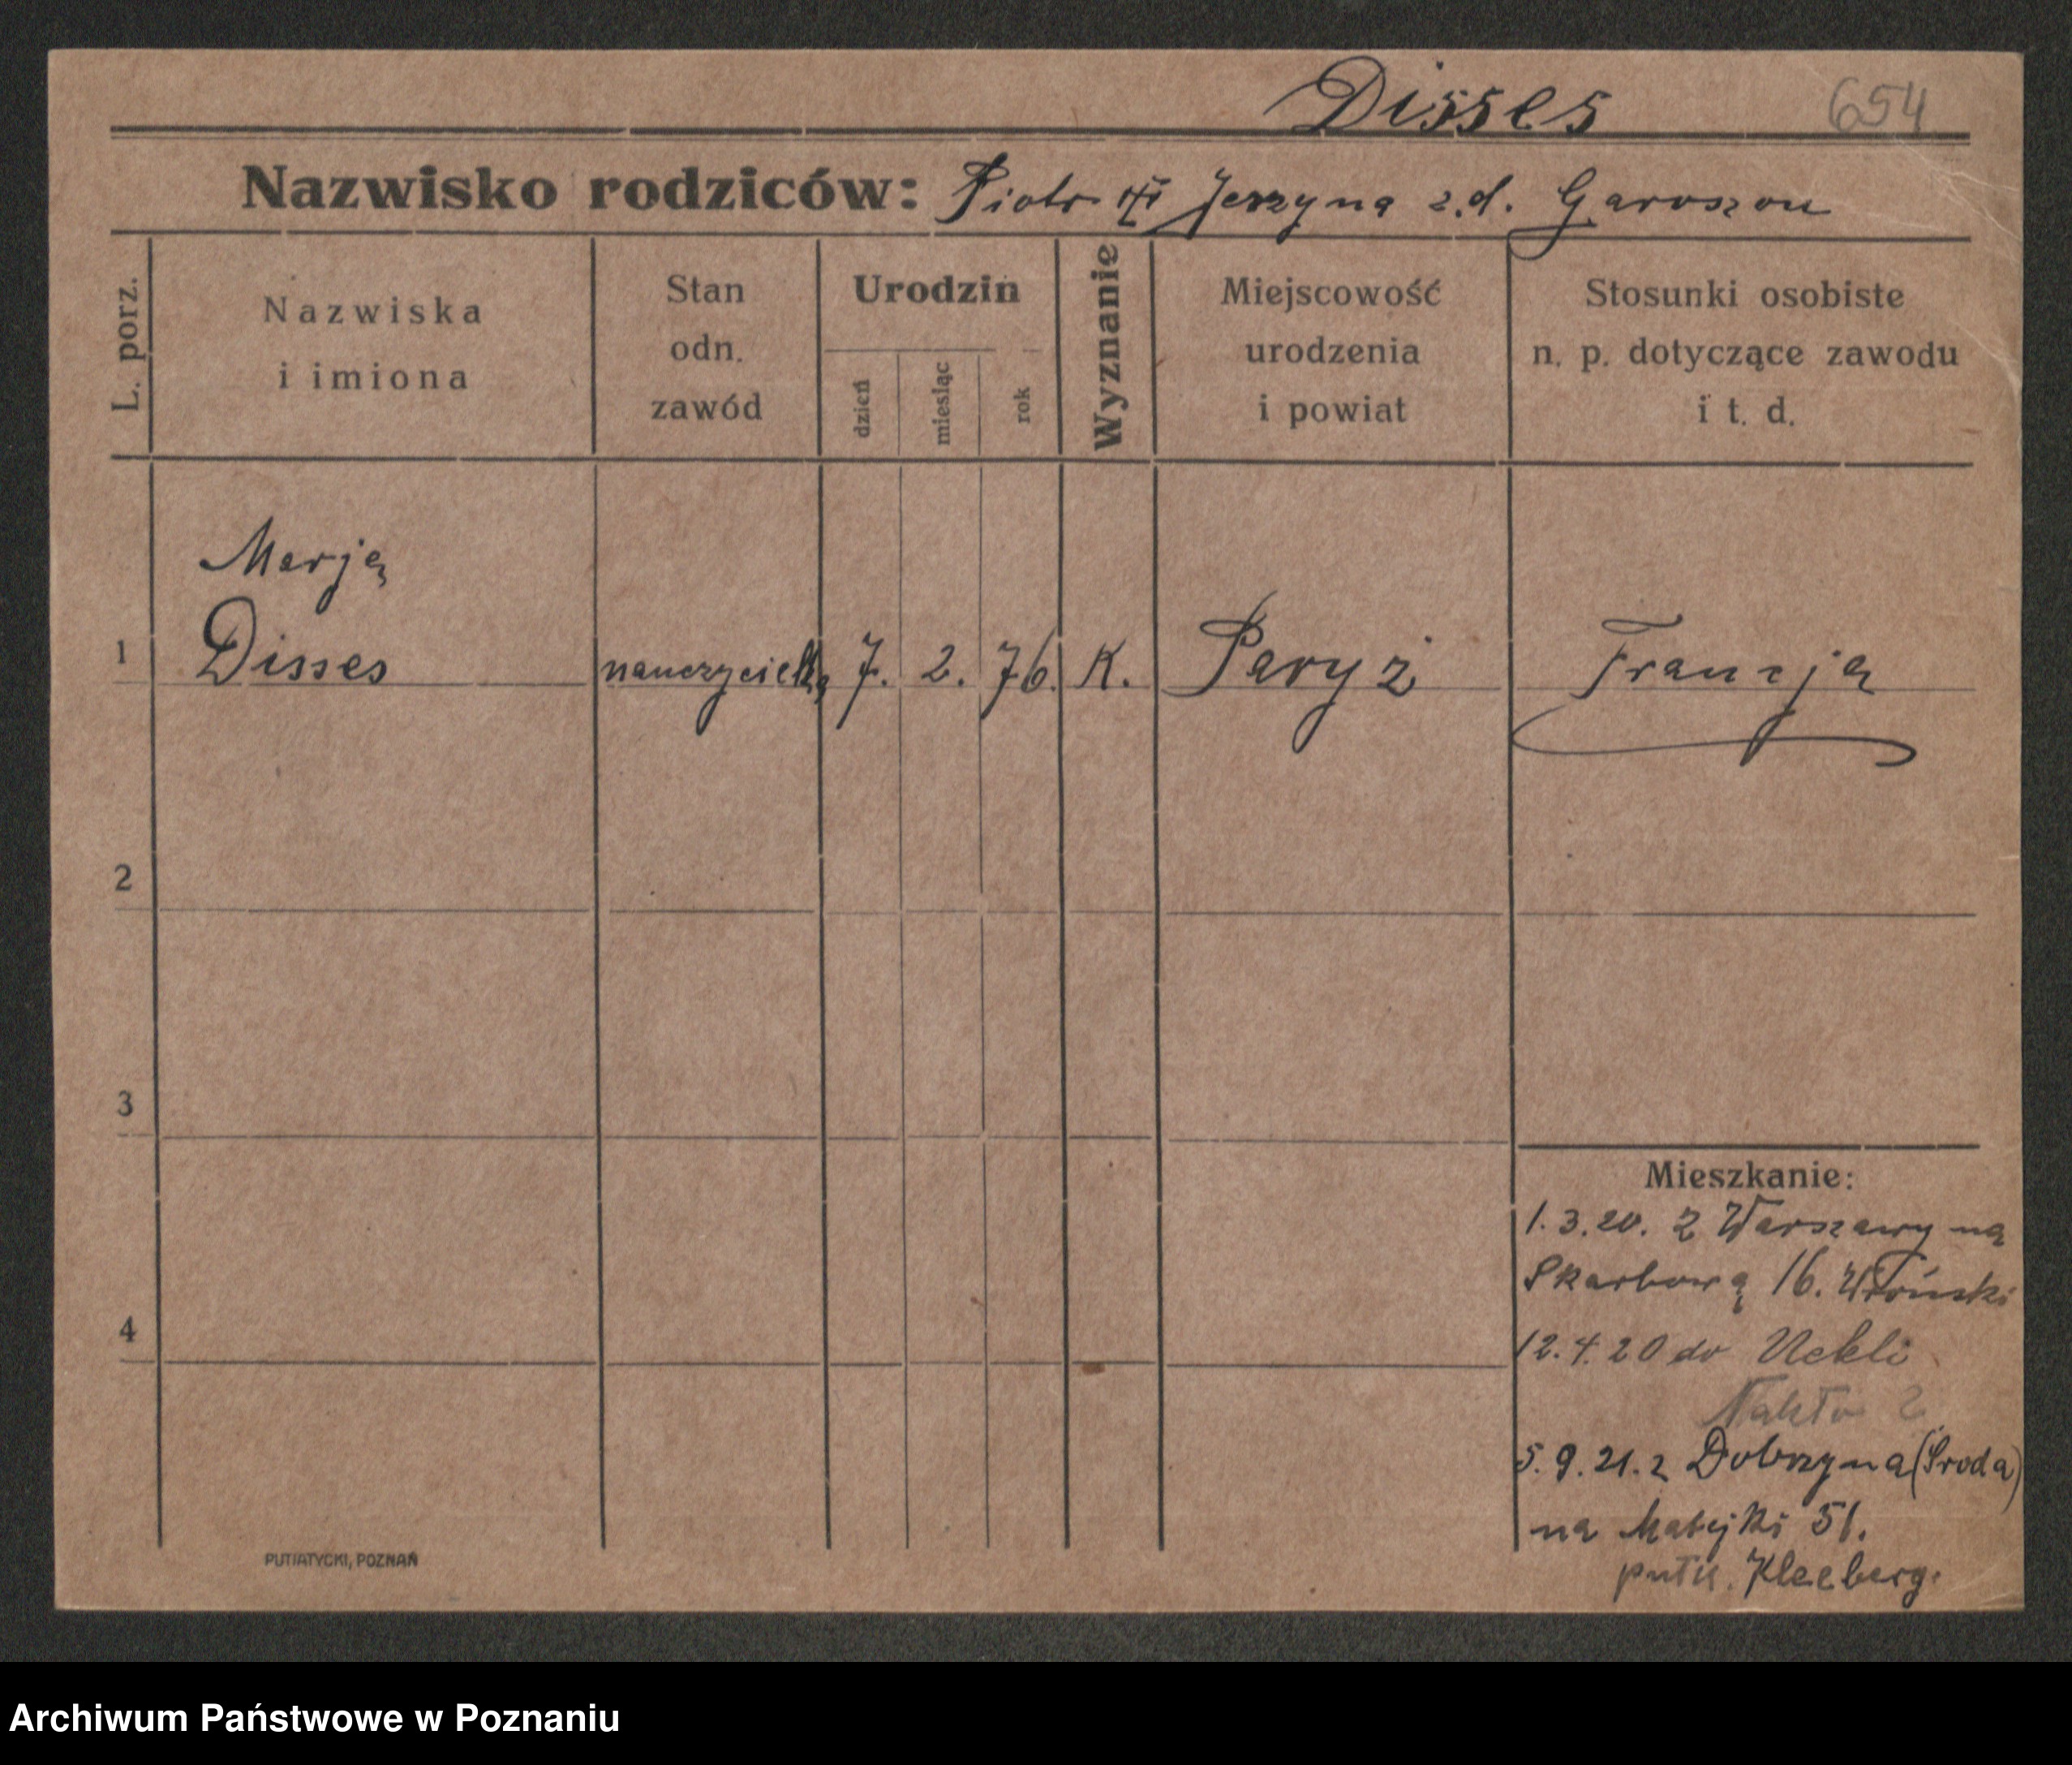 Disses 654
Nazwisko rodziców: Piotr i Jerzyna z.d. Garoszou
L. porz.
Nazwiska
i imiona
Stan
odn.
zawód
Urodzin
dzień
miesiąc
rok
Wyznanie
Miejscowość
urodzenia
i powiat
Stosunki osobiste
n. p. dotyczące zawodu
i t. d.
Marja
1 Disses nauczycielka 7. 2. 76. K. Paryż Francja
2
3
4
Mieszkanie:
1.3.20. z Warszawy na
Skarbową 16.
12.4.20 do Nekli
Nakło
5.9.21. z Dobrzyna (Środa)
na Matejki 51.
pułk. Kleeberg.
PUTIATYCKI, POZNAŃ
Archiwum Państwowe w Poznaniu